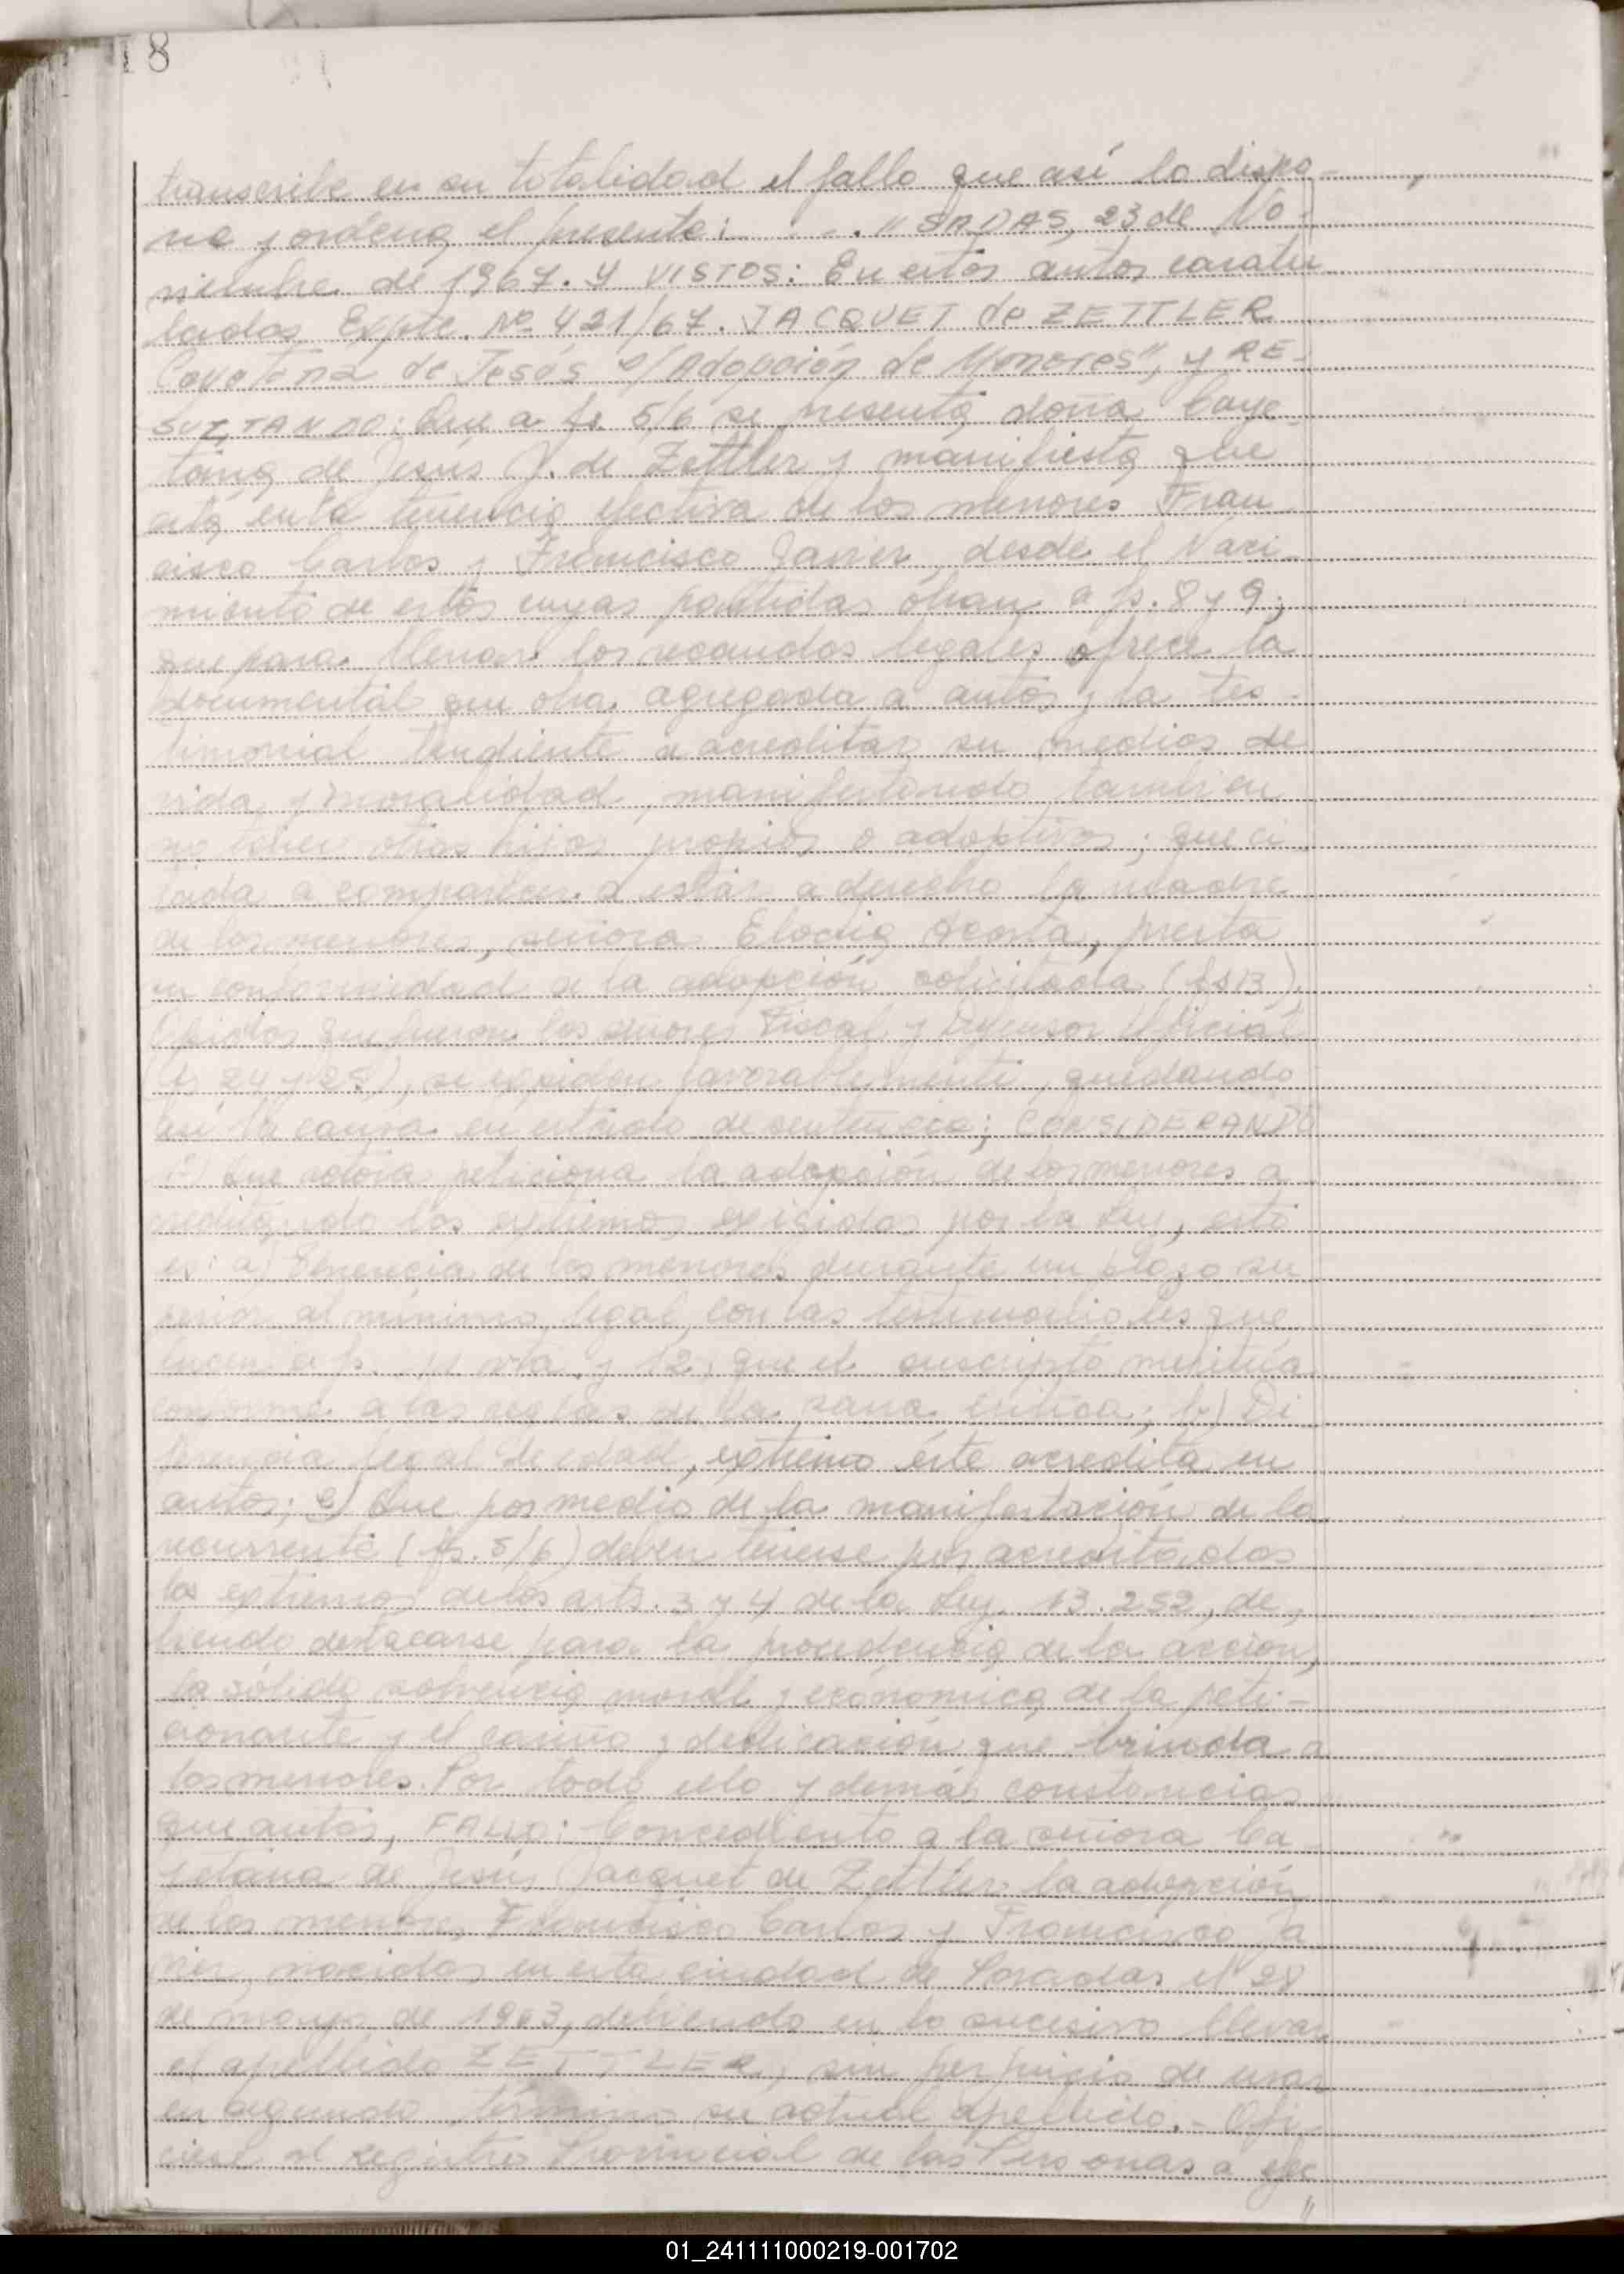 18
transcribe en su totalidad el fallo que así lo dispo-
ne y ordena el presente: . . . "SADAS, 23 de No-
viembre de 1967. Y VISTOS: En estos autos caratu
lados Expte. Nº 421/67. JACQUET de ZETTLER
Cayetana de Jesús s/Adopción de Menores", y RE-
SULTANDO: Que a fs. 5/6 se presenta doña Caye-
tana de Jesús J. de Zettler y manifiesta que
está en la tenencia efectiva de los menores Fran
cisco Carlos y Francisco Javier, desde el Naci-
miento de estos cuyas partidas obran a fs. 8 y 9;
que para llenar los recaudos legales ofrece la
documental que obra agregada a autos y la tes-
timonial tendiente a acreditar su medios de
vida y moralidad, manifestando también
no tener otros hijos propios o adoptivos; que ci
tada a comparecer a estar a derecho la madre
de los menores, señora Elodia Acosta, presta
su conformidad a la adopción solicitada (fs 13).
Oídos que fueron los señores Fiscal y Defensor Oficial
(fs 24 y 25), se expiden favorablemente, quedando
así la causa en estado de sentencia; CONSIDERANDO
Que actora peticiona la adopción de los menores a
creditando los extremos exigidos por la Ley, esto
es: a) Tenencia de los menores durante un plazo su
perior al mínimo legal, con las testimoniales que
lucen a fs. 11 vta. y 12, que el suscripto meritúa
conforme a las reglas de la sana crítica; b) Di
ferencia legal de edad, extremo éste acredita en
autos; c) Que por medio de la manifestación de la
recurrente (fs. 5/6) deben tenerse por acreditados
los extremos de los arts. 3 y 4 de la Ley 13.252, de
biendo destacarse para la procedencia de la acción,
la sólida solvencia moral y económica de la peti-
cionante y el cariño y dedicación que brinda a
los menores. Por todo ello y demás constancias
que autos, FALLO: Concediento a la señora Ca
yetana de Jesús Jacquet de Zettler la adopción
de los menores Francisco Carlos y Francisco Ja
vier, nacidos en esta ciudad de Posadas el 28
de mayo de 1963, debiendo en lo sucesivo llevar
el apellido ZETTLER, sin perjuicio de usar
en segundo término su actual apellido.- Ofi-
ciese al Registro Provincial de las Personas a efec
//
01_241111000219-001702